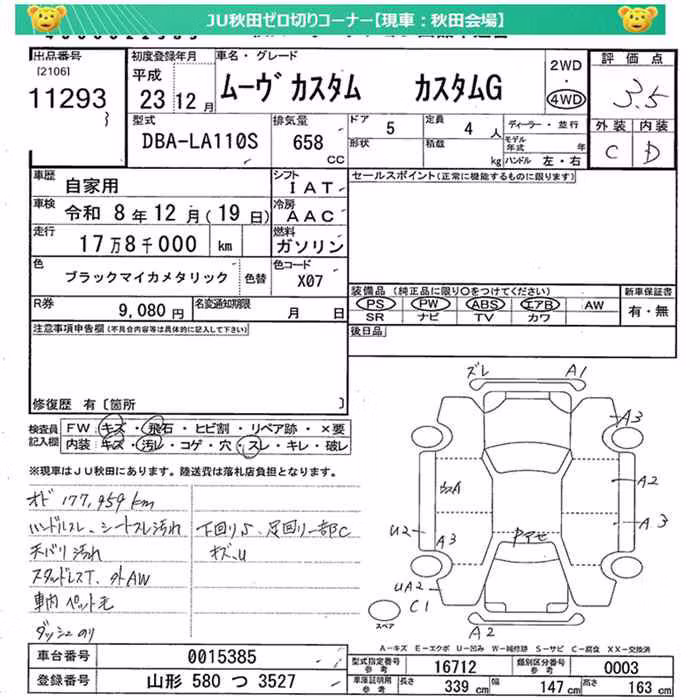 JU秋田ゼロ切りコーナー【現車：秋田会場】
出品番号
[2106]
11293
初度登録年月
平成
23 12月
車名・グレード
ムーヴ カスタム カスタムG
2WD
・
4WD
評価点
3.5
外装 内装
C D
型式
DBA-LA110S
排気量
658
CC
ドア 5
形状
定員 4 人
積載 kg
ディーラー・並行
モデル年式 年
ハンドル 左・右
車歴 自家用
シフト IAT
セールスポイント(正常に機能するものに限ります)
車検 令和 8年12月(19日)
冷房 AAC
走行 17万8千000 km
燃料 ガソリン
色 ブラックマイカメタリック 色替
色コード X07
装備品 (純正品に限り○をつけてください)
新車保証書
PS PW ABS エアB AW
有・無
SR ナビ TV カワ
R券 9,080円
名変通知期限 月 日
後日品
注意事項申告欄(不具合内容等は具体的に記入して下さい)
修復歴 有[箇所 ]
検査員記入欄
FW:キズ・飛石・ヒビ割・リペア跡・×要
内装:キズ・汚レ・コゲ・穴・スレ・キレ・破レ
※現車はJU秋田にあります。陸送費は落札店負担となります。
オド 177,959km
ハンドルスレ、シートスレ汚れ
天バリ汚れ
スタッドレスT、外AW
車内ペット毛
ダッシュのり
下回りS、足回り一部C
キズ、U
ズレ A1
A3
A2
A3
A
U2 A3
UA2
C1
A2
Pアせ
スペア
A-キズ E-エクボ U-凹み W-補修跡 S-サビ C-腐食 XX-交換済
車台番号 0015385
登録番号 山形 580 つ 3527
型式指定番号 参考 16712
類別区分番号 参考 0003
車庫証明用 参考 長さ 339 cm 幅 147 cm 高さ 163 cm